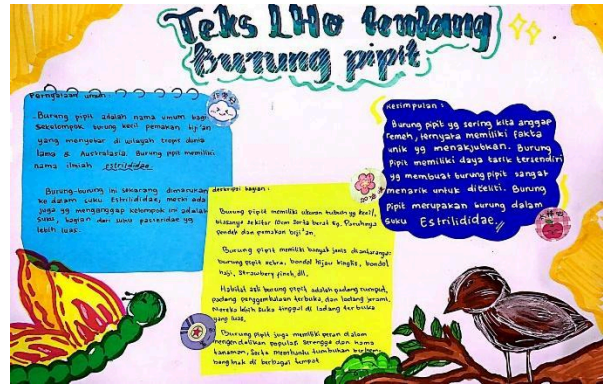 Teks LHO tentang
Burung pipit
Pernyataan umum:
Burung pipit adalah nama umum bagi
sekelompok burung kecil pemakan biji'an
yang menyebar di wilayah tropis dunia
lama & Australasia. Burung pipit memiliki
nama ilmiah estrildidae.
Burung-burung ini sekarang dimasukan
ke dalam suku Estrildidae, meski ada
juga yg menganggap kelompok ini adalah
suku, bagian dari suku passeridae yg
lebih luas.
deskripsi bagian:
Burung Pipit memiliki ukuran tubuh yg kecil,
biasanya sekitar 10cm serta berat 6g. Paruhnya
pendek dan pemakan biji'an.
Burung Pipit memiliki banyak jenis diantaranya:
burung pipit zebra, bondol hijau binglis, bondol
haji, Strawberry finch, dll.
Habitat asli burung pipit adalah padang rumput,
padang penggembalaan terbuka, dan ladang jerami.
Mereka lebih suka tinggal di ladang terbuka
yang luas.
Burung Pipit juga memiliki peran dalam
mengendalikan populasi serangga dan hama
tanaman, serta membantu tumbuhan
di berbagai tempat
Kesimpulan:
Burung pipit yg sering kita anggap
remeh, ternyata memiliki fakta
unik yg menakjubkan. Burung
Pipit memiliki daya tarik tersendiri
yg membuat burung pipit sangat
menarik untuk diteliti. Burung
Pipit merupakan burung dalam
suku Estrilididae.